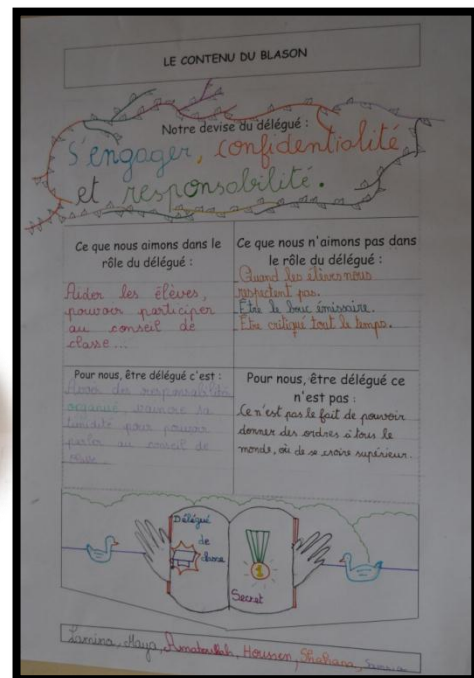 LE CONTENU DU BLASON
Notre devise du délégué :
S'engager, confidentialité
et responsabilité.
Ce que nous aimons dans le
rôle du délégué :
Aider les élèves,
pouvoir participer
au conseil de
classe...
Ce que nous n'aimons pas dans
le rôle du délégué :
Quand les élèves nous
respectent pas.
Etre le bouc émissaire.
Etre critiqué tout le temps.
Pour nous, être délégué c'est :
Avoir des responsabilités
vaincre sa
timidité pour pouvoir
parler au conseil de
classe
Pour nous, être délégué ce
n'est pas :
Ce n'est pas le fait de pouvoir
donner des ordres à tous le
monde, où de se croire supérieur.
Délégué
de
classe
1
Secret
Lamina, Maya, Amatoullah, Houssen, Shahana,